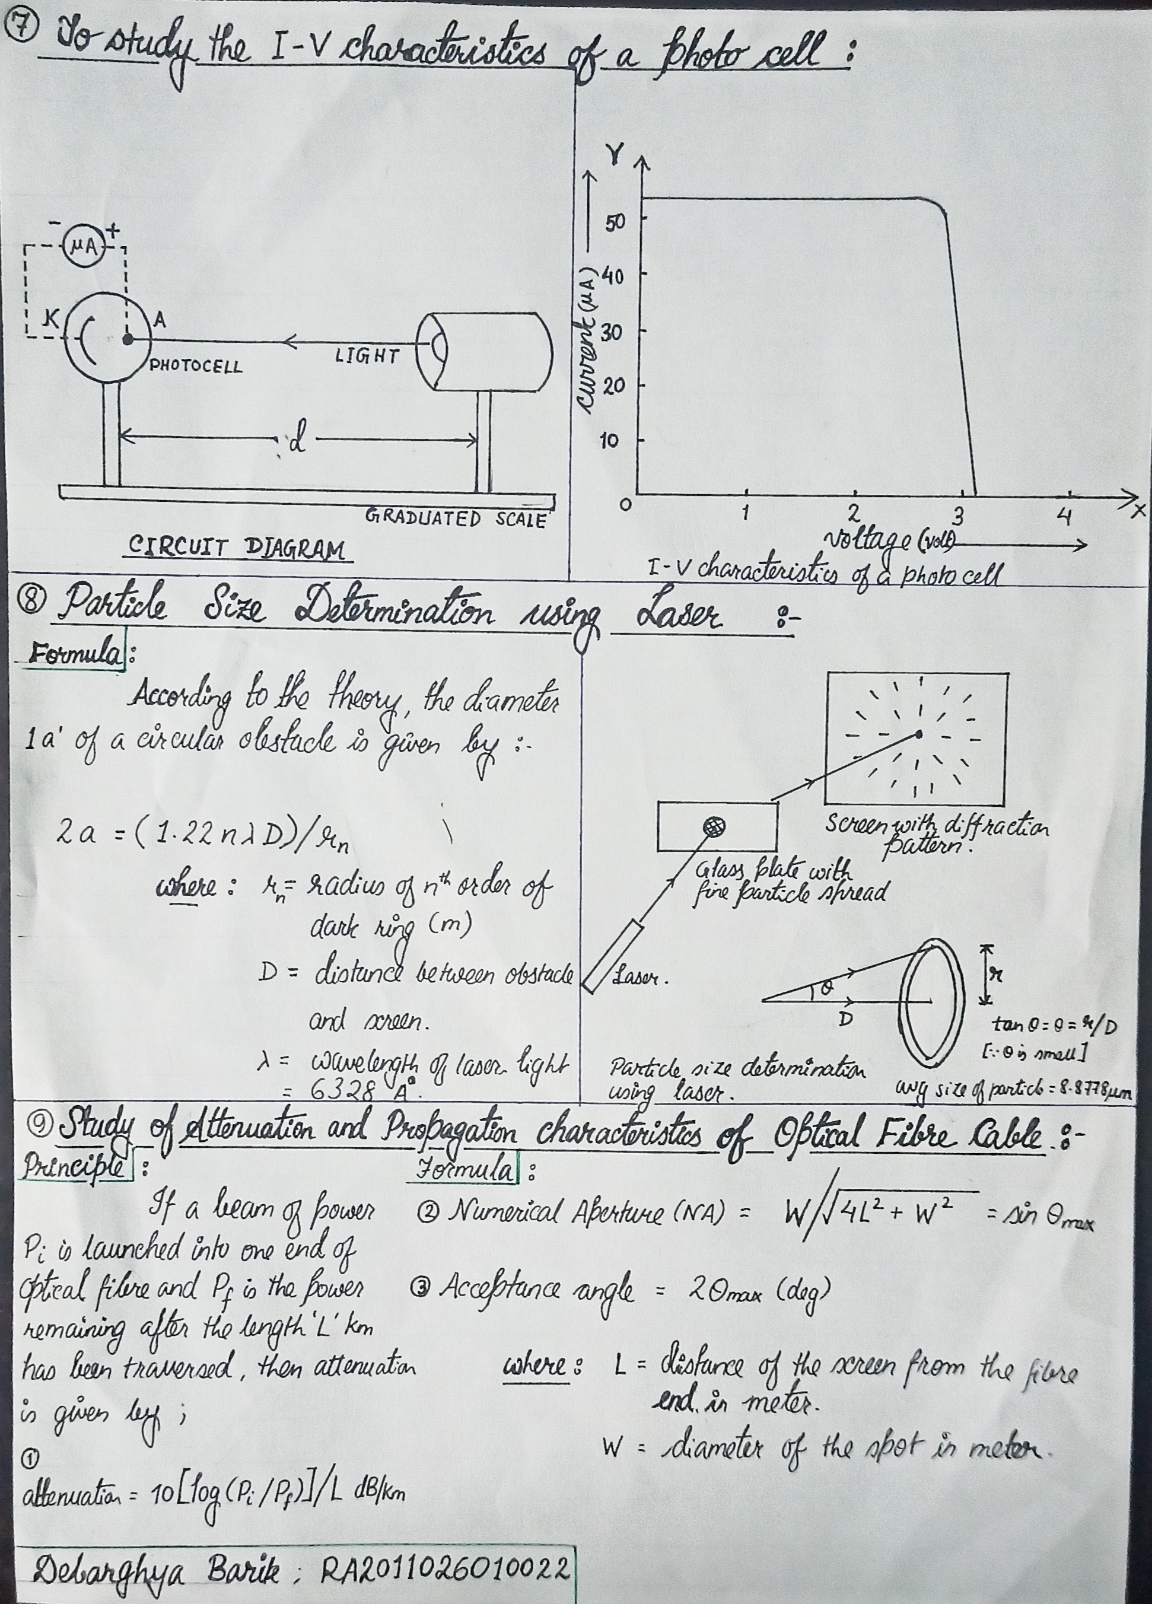 ⑦ To study the I-V characteristics of a photo cell :
- μA +
K A
PHOTOCELL
LIGHT
d
GRADUATED SCALE
CIRCUIT DIAGRAM
Y
50
40
30
20
10
0 1 2 3 4 X
current (μA)
voltage (volt)
I-V characteristics of a photo cell
⑧ Particle Size Determination using Laser :-
Formula :
According to the theory, the diameter
1a' of a circular obstacle is given by :-
2a = (1.22 n λ D)/rn
where : rn = radius of nth order of
dark ring (m)
D = distance between obstacle
and screen.
λ = wavelength of laser light
= 6328 A°.
Screen with diffraction
pattern.
Glass plate with
fine particle spread
Laser.
θ
D
r
tan θ = θ = r/D
[∵ θ is small]
Particle size determination
using laser.
avg size of particle = 8.8778 μm
⑨ Study of Attenuation and Propagation characteristics of Optical Fibre Cable :-
Principle :
If a beam of power
Pi is launched into one end of
optical fibre and Pf is the power
remaining after the length 'L' km
has been traversed, then attenuation
is given by ;
①
attenuation = 10[log(Pi/Pf)]/L dB/km
Formula :
② Numerical Aperture (NA) = W/√4L² + W² = sin θmax
③ Acceptance angle = 2θmax (deg)
where : L = distance of the screen from the fibre
end in meter.
W = diameter of the spot in meter.
Debarghya Barik ; RA2011026010022